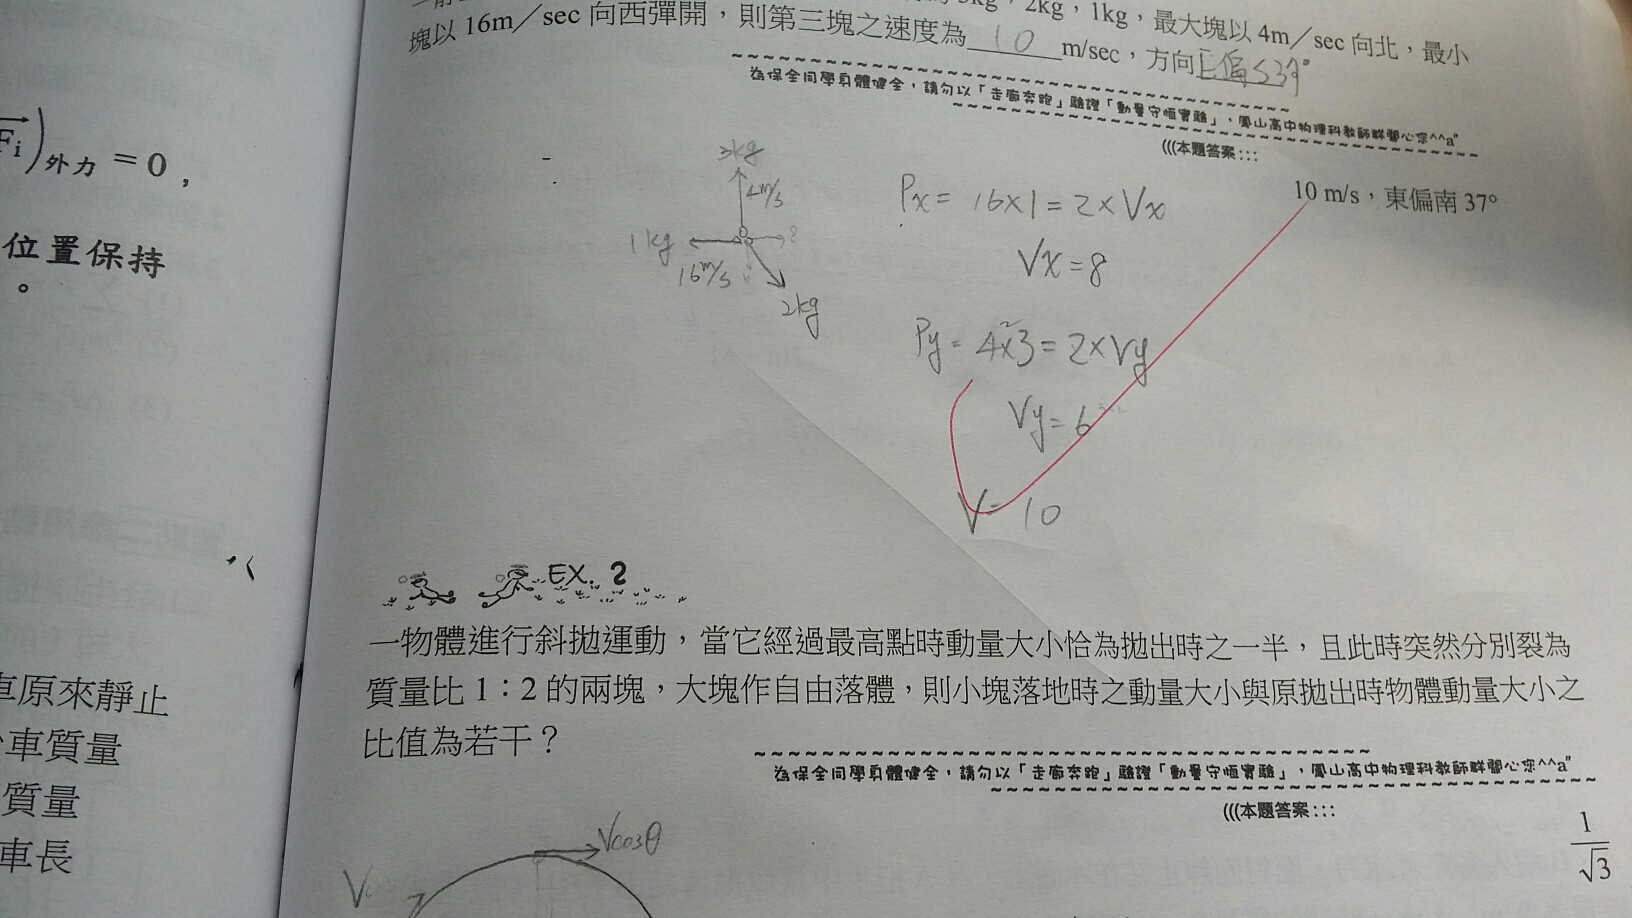 3kg，2kg，1kg，最大塊以 4m／sec 向北，最小
塊以 16m／sec 向西彈開，則第三塊之速度為 10 m/sec，方向E偏S37°
為保全同學身體健全，請勿以「走廊奔跑」驗證「動量守恆實驗」，鳳山高中物理科教師群關心您^^a"
(((本題答案:::
10 m/s，東偏南 37°
3kg
4m/s
1kg
8
16m/s
2kg
Px = 16×1 = 2×Vx
Vx = 8
Py = 4×3 = 2×Vy
Vy = 6
V = 10
EX. 2
一物體進行斜拋運動，當它經過最高點時動量大小恰為拋出時之一半，且此時突然分別裂為
質量比 1：2 的兩塊，大塊作自由落體，則小塊落地時之動量大小與原拋出時物體動量大小之
比值為若干？
為保全同學身體健全，請勿以「走廊奔跑」驗證「動量守恆實驗」，鳳山高中物理科教師群關心您^^a"
(((本題答案:::
1/√3
Vcosθ
V
Fi)外力 = 0，
位置保持
。
車原來靜止
車質量
質量
車長